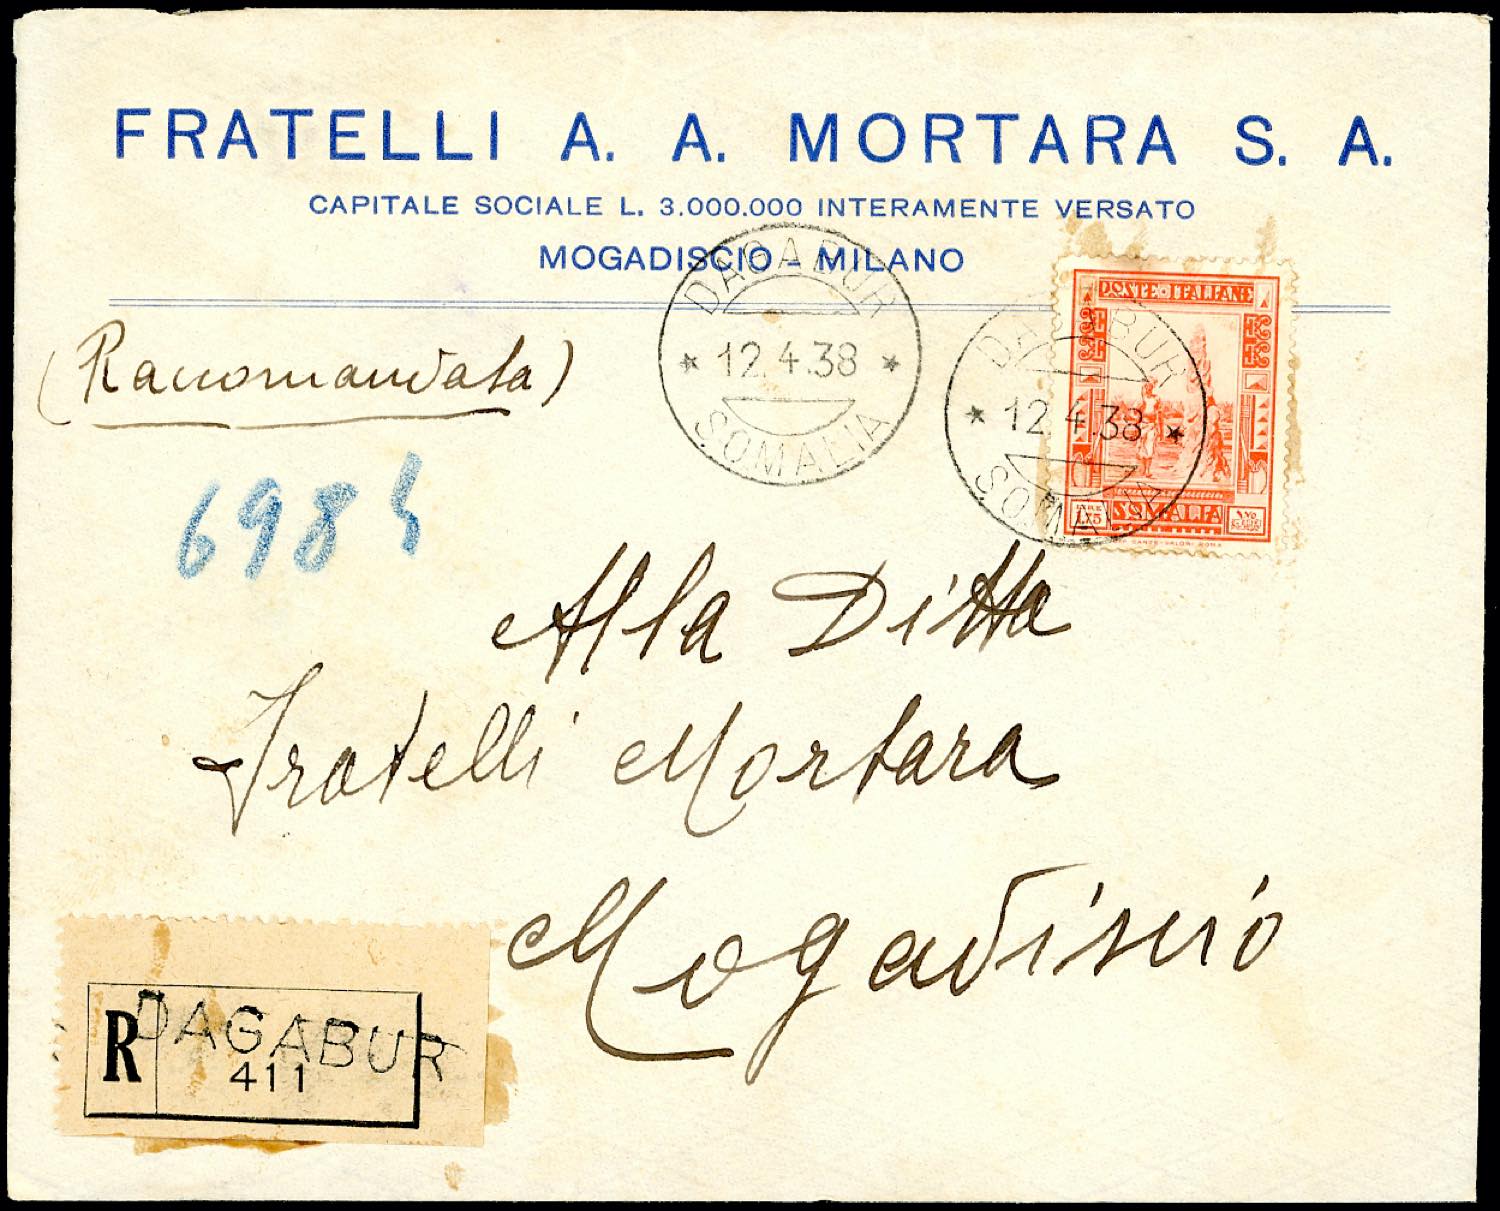 FRATELLI A. A. MORTARA S. A.
CAPITALE SOCIALE L. 3.000.000 INTERAMENTE VERSATO
MOGADISCIO – MILANO
DAGABUR
12.4.38
SOMALIA
POSTE ITALIANE
DAGABUR
12.4.38
SOMALIA
LIRE 1,75
SOMALIA
(Raccomandata)
698
Alla Ditta
Fratelli Mortara
Mogadiscio
R
DAGABUR
411